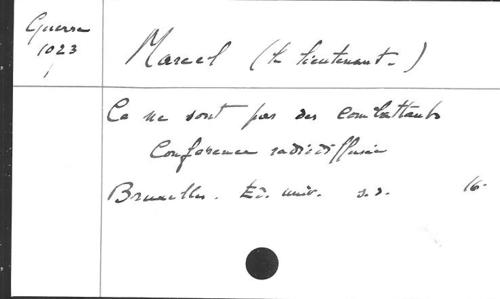 Guerre
1023
Marcel (le lieutenant.)
Ce ne sont pas des combattants
Conférence radiodiffusée
Bruxelles. Ed. univ. s.d. 16.